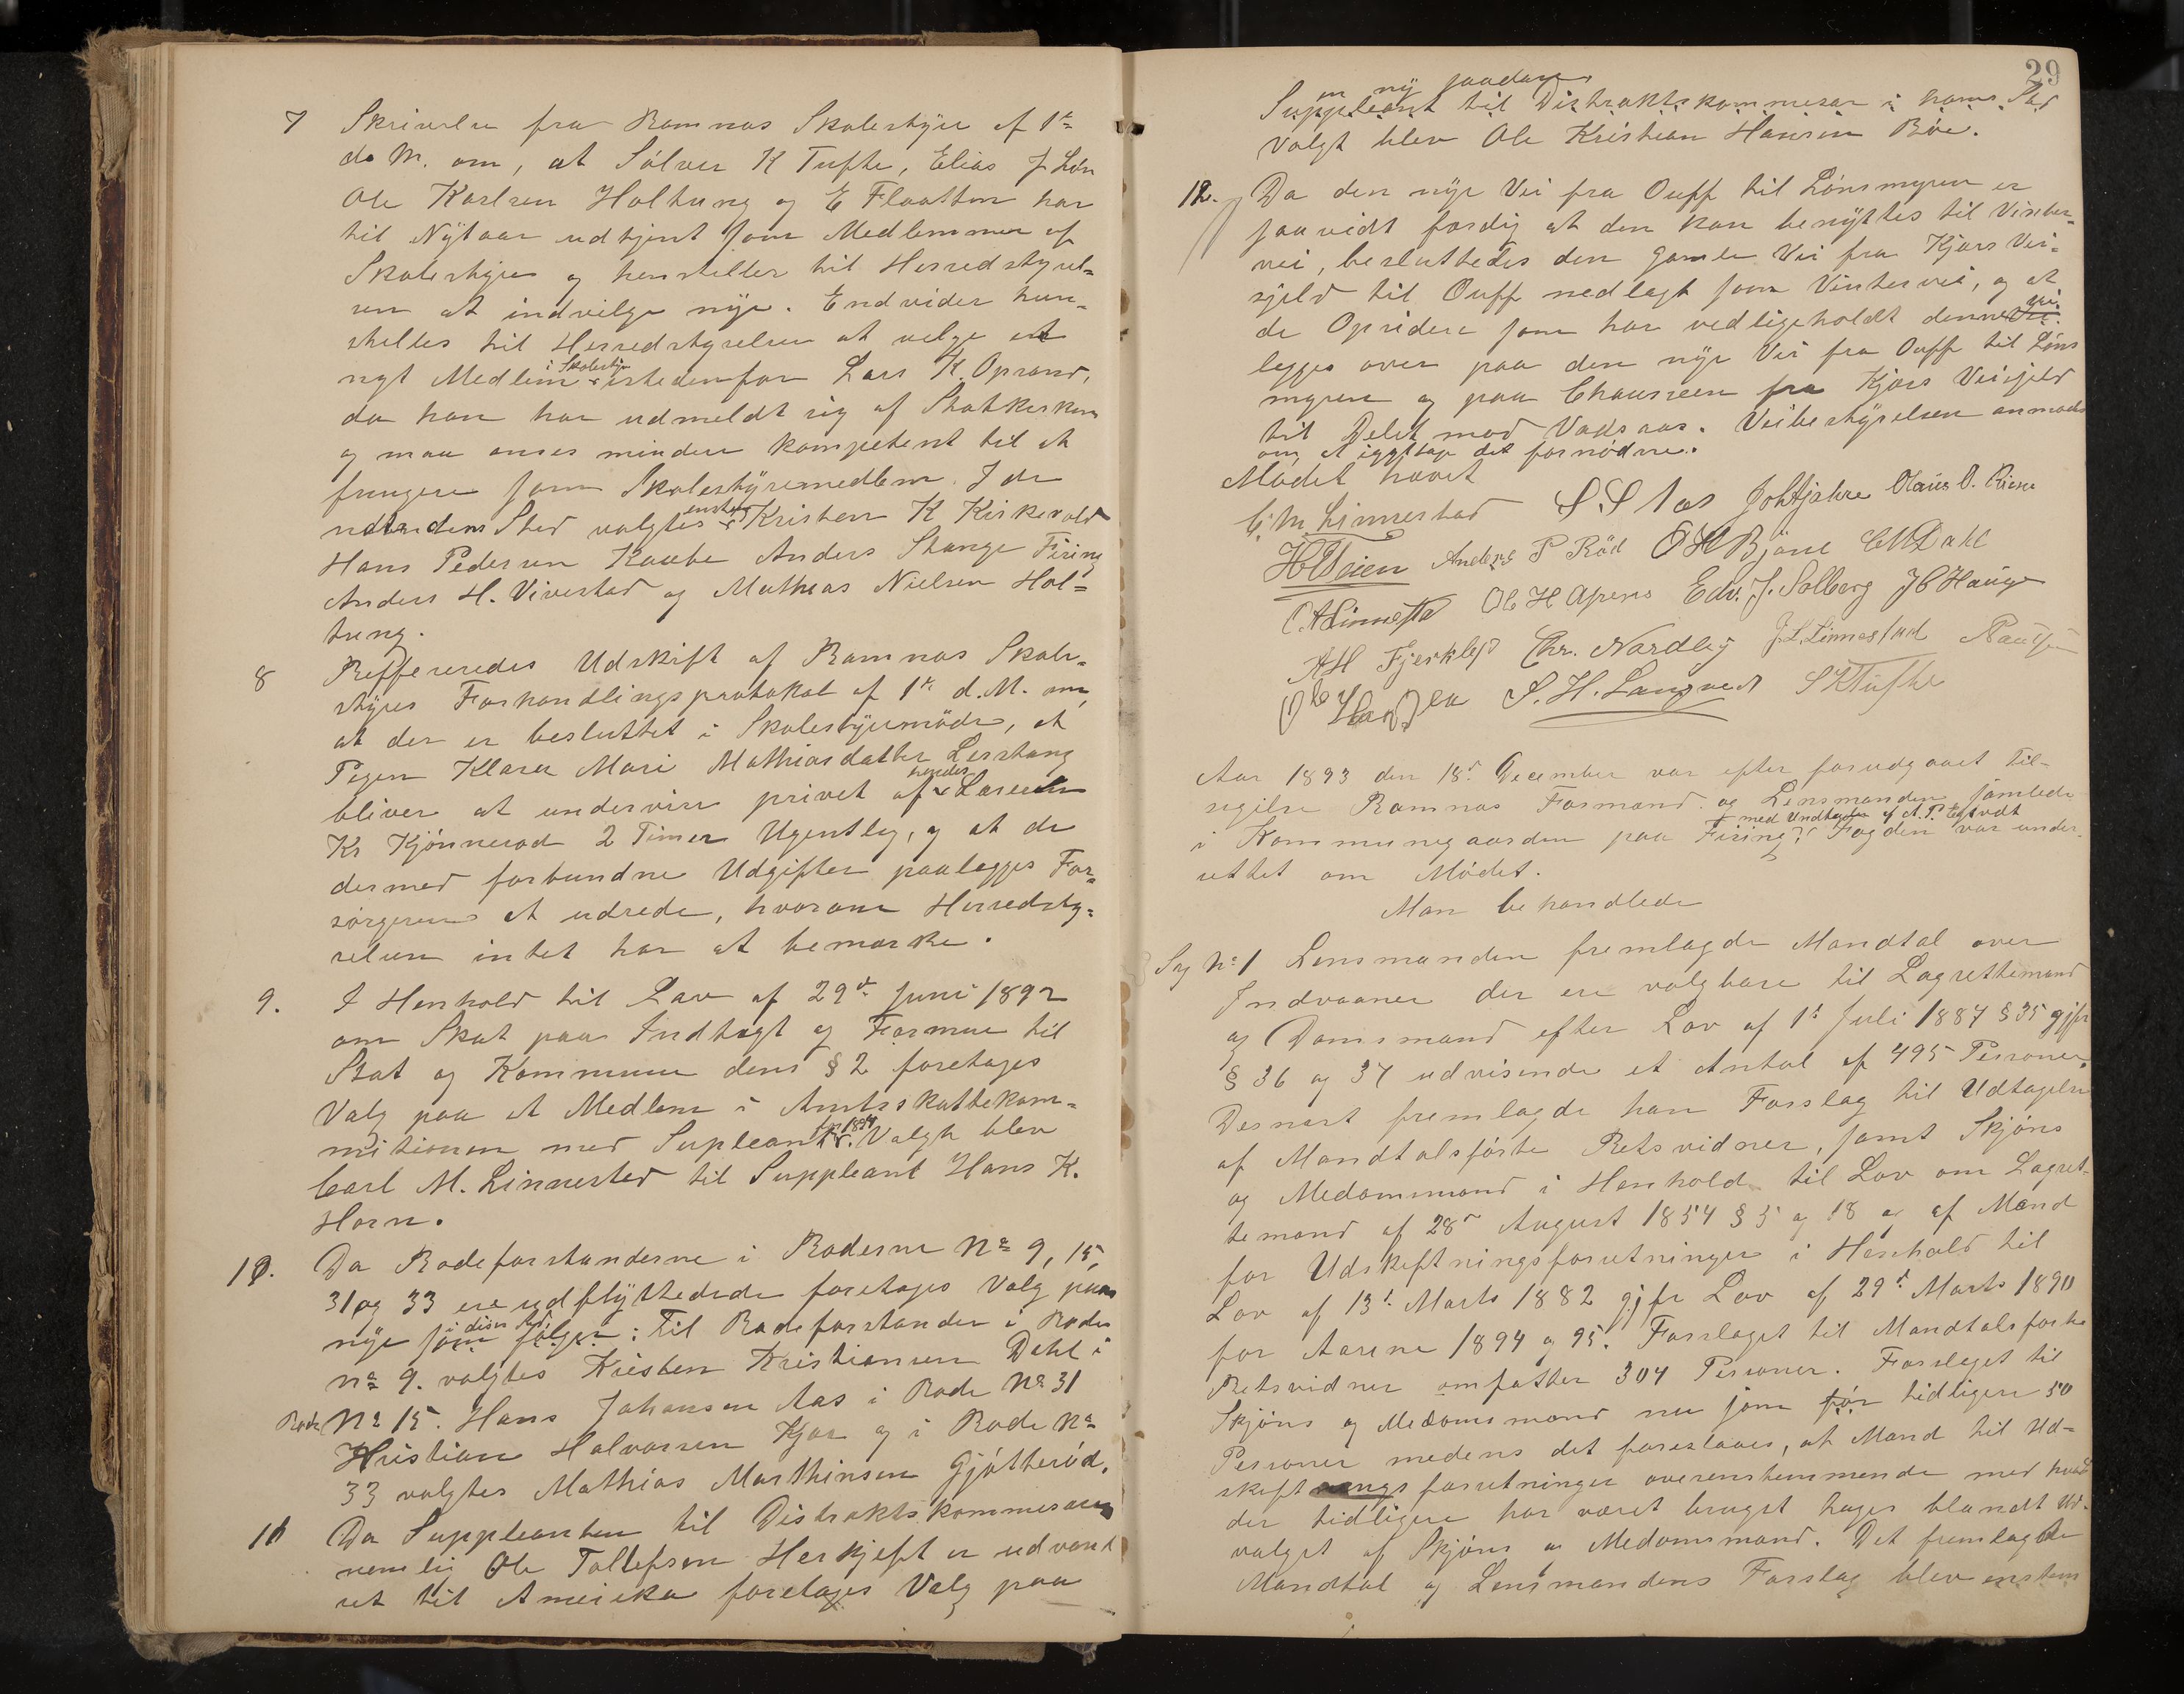 7 Skrivelse fra Ramnæs Skolestyre af 1ste
ds M. om, at Sølver K Tufte, Elias J Løn
Ole Karlsen Holtung og E Flaatten har
til Nytaar udtjent som Medlemmer af
Skolestyre og henstiller til Herredstyrel-
sen at indvælge nye. Endvider hen-
stilles til Herredstyrelsen at vælge et
nyt Medlem i Skolestyre istedenfor Lars K. Oprand,
da han har udmeldt sig af Statskirken
og maa anses mindre kompetent til at
fungere som Skolestyremedlem. I de
Sted valgtes Kristen K Kirkevold
Hans Pedersen Kaabe Anders Stange Firing
Anders H. Vivestad og Mathias Nielsen Hol-
tung.
8 Reffereredes Udskift af Ramnæs Skole-
styres Forhandlingsprotokol af 1ste d.M. om,
at der er besluttet i Skolestyremøde, at
Pigen Klara Mari Mathiasdatter Lerstang
bliver at undervise privat af hendes Lærer
Kr Kjønnerød 2 Timer Ugentlig, og at de
dermed forbundne Udgifter paalægges For-
sørgeren at udrede, hvorom Herredsty-
relsen intet har at bemærke.
9. I Henhold til Lov af 29de Juni 1892
om Skat paa Indtægt og Formue til
Stat og Kommune dens § 2 foretages
Valg paa et Medlem i Amtsskattekom-
mitionen med Supleant for 1894. Valgt blev
Carl M. Linnestad til Suppleant Hans K.
Horn.
10. Da Rodeforstanderne i Roderne No 9, 15,
31 og 33 ere udflyttede foretages Valg paa
nye i dises sted som følger: Til Rodeforstander i Rode
No 9. valgtes Kristen Kristiansen Dehl i
Rode No 15. Hans Johansen Aas i Rode No 31
Kristian Halvorsen Kjær og i Rode No
33 valgtes Mathias Marthinsen Gjøtterød.
11 Da Suppleanten til Distriktskommesæren
nemlig Ole Tollefsen Herkjeft er udvand
ret til Amerika foretages Valg paa
29
en ny saadan
Suppleant til Distriktskommesær i hans Sted
valgt blev Ole Kristian Hansen Bøe.
12. Da den nye Vei fra Ouff til Lønsmyren er
saavidt færdig at den kan benyttes til Vinter-
vei, besluttedes den gamle Vei fra Kjærs Vei-
sjeld til Ouff nedlagt som Vintervei, og at
de Opsidere som har vedligeholdt denne Vei
lægges over paa den nye Vei fra Ouff til Løns
myren og paa Chausseen fra Kjærs Veisjeld
til Delet mod Vadsaas. Veibestyrelsen anmodes
om at iagttage det fornødne.
Mødet hævet
C. M. Linnestad S. S. Aas Joh Hjahre Olaus O. Riise
H Weien Anders P Röd O H Bjöne C M Dahl
C. A Linnestad Ole H Apenes Edv. J. Solberg J C Hauge
A H Fjerklep Chr. Nordby J. L. Linnestad Paulsen
Ole Hansen S. H. Langved S K Tufte
Aar 1893 den 18de December var efter forudgaaet Til-
sigelse Ramnæs Formænd og Lensmanden samlede
i Kommunegaarden paa Firing med Undtagelse af A. P. Fogden var under-
rettet om Mødet.
Man behandlede
Sag No 1 Lensmanden fremlagde Mandtal over
Indvaaner der ere valgbare til Lagrettemænd
og Domsmænd efter Lov af 1ste Juli 1887 § 35 gjfr
§ 36 og 37 udvisende et Antal af 495 Personer.
Desnæst fremlagde han Forslag til Udtagelse
af Mandtalsførte Retsvidner, samt Skjøns
og Medomsmænd i Henhold til Lov om Lagret-
temænd af 28de August 1854 § 5 og 18 og af Mænd
for Udskiftningsforretninger i Henhold til
Lov af 13de Marts 1882 gjfr Lov af 29de Marts 1890
for Aarene 1894 og 95. Forslaget til Mandtalsførte
Retsvidner omfatter 304 Personer. Forslaget til
Skjøns og Medomsmænd nu som før tidligere 50
Personer medens det foreslaaes, at Mænd til Ud-
skiftningsforretninger overensstemmende med hvad
der tidligere har været brugt tages blandt Ud-
valget af Skjøns og Medomsmænd. Det fremlagte
Mandtal og Lensmandens Forslag blev enstem